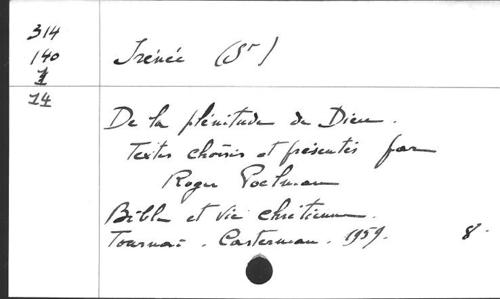 314
140
1
14
Irénée (St)
De la plénitude de Dieu.
Textes choisis et présentés par
Roger Poelman
Bible et vie chrétienne.
Tournai. Casterman. 1959. 8.